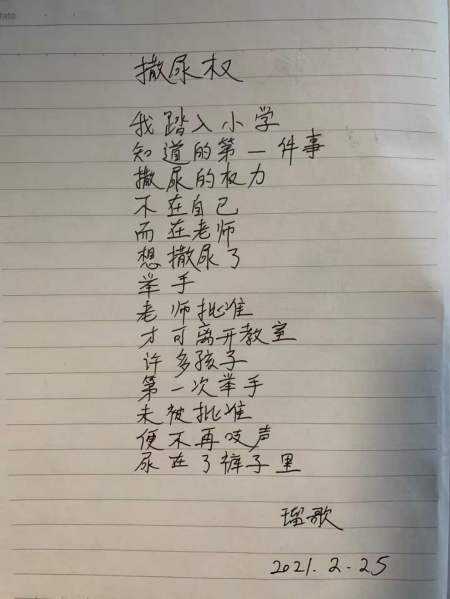 撒尿权
我踏入小学
知道的第一件事
撒尿的权力
不在自己
而在老师
想撒尿了
举手
老师批准
才可离开教室
许多孩子
第一次举手
未被批准
便不再吱声
尿在了裤子里
瑠歌
2021.2.25